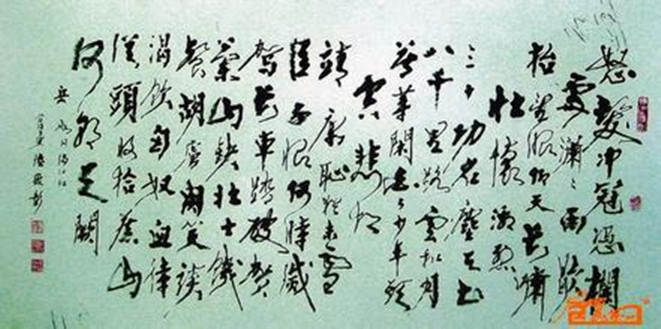 怒髮冲冠憑欄
處瀟々雨歇
抬望眼仰天長嘯
壯懷激烈
三十功名塵与土
八千里路雲和月
莫等閑白了少年頭
空悲切
靖康恥猶未雪
臣子恨何時滅
駕長車踏破賀
蘭山缺壯士飢
餐胡虜肉笑談
渴飲匈奴血待
從頭收拾舊山
河朝天闕
岳飛詞滿江紅